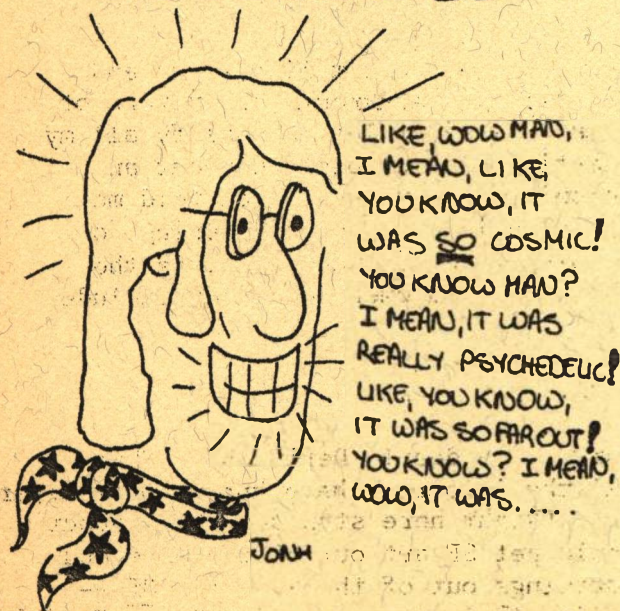 LIKE, WOW MAN,
I MEAN, LIKE,
YOU KNOW, IT
WAS SO COSMIC!
YOU KNOW MAN?
I MEAN, IT WAS
REALLY PSYCHEDELIC!
LIKE, YOU KNOW,
IT WAS SO FAR OUT!
YOU KNOW? I MEAN,
WOW, IT WAS.....
JONH